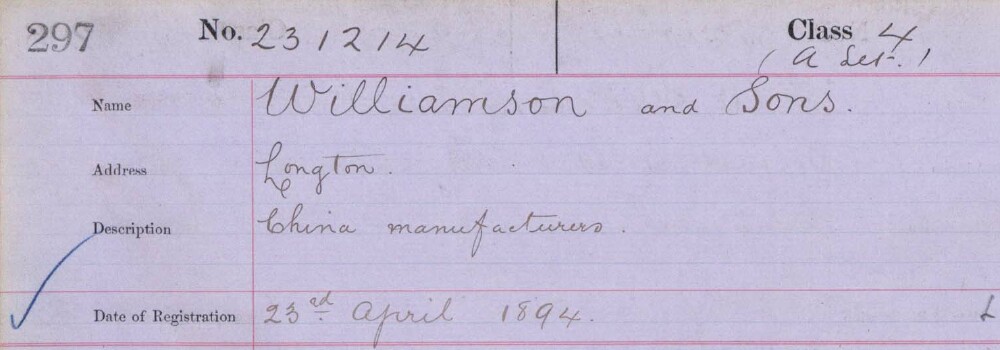 297 No. 231214 Class 4
(A Set.)
Name Williamson and Sons.
Address Longton.
Description China manufacturers.
Date of Registration 23rd April 1894. L